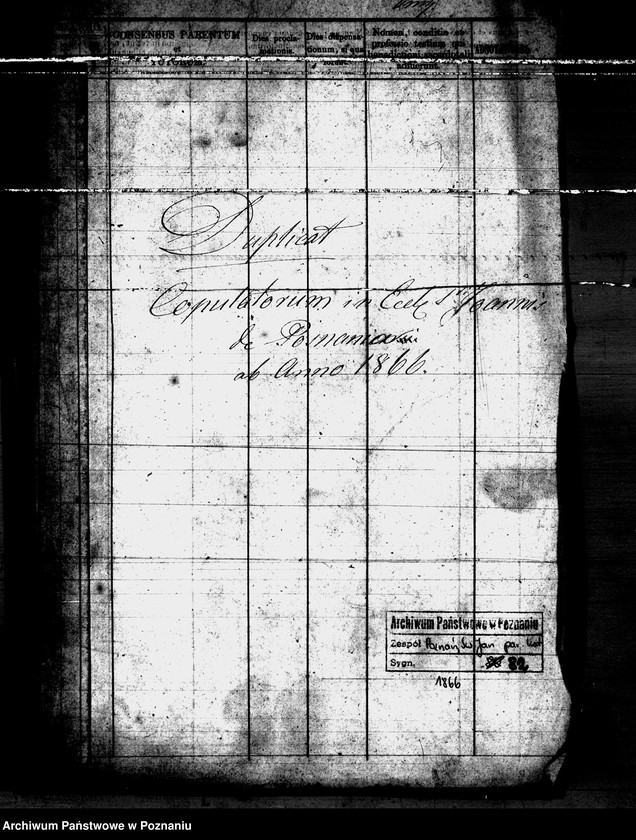 CONSENSUS PARENTUM
et
Dies procla-
mationis.
Dies dispensa-
tionum, si quae
Nomen, conditio et
professio testium qui
Duplicat
Copulatorum in Eccle St Joannis
de Posnania
ab Anno 1866.
Archiwum Państwowe w Poznaniu
Zespół Poznań Św Jan par. kat
Sygn. 82
1866
Archiwum Państwowe w Poznaniu